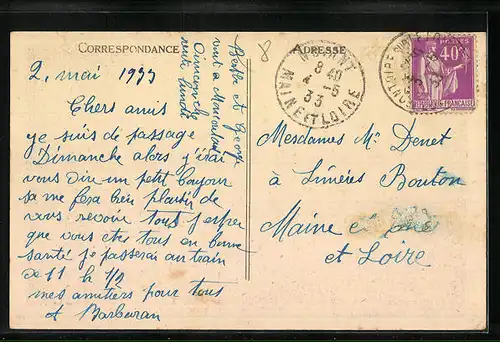 CORRESPONDANCE
ADRESSE
8
2 mai 1933
Chers amis
je suis de passage
Dimanche alors j'irai
vous dire un petit bonjour
sa me fera bien plaisir de
vous revoir tous j'esper
que vous etes tous en bonne
santé je passerai au train
de 11 h 1/2
mes amitiers pour tous
Berthe et George
vont a
Dimanche
Mesdames Mr Denet
a Linières Bouton
Maine et Loire
et Loire
8 40
5
33
MAINE ET LOIRE
POSTES
40c
REPUBLIQUE FRANÇAISE